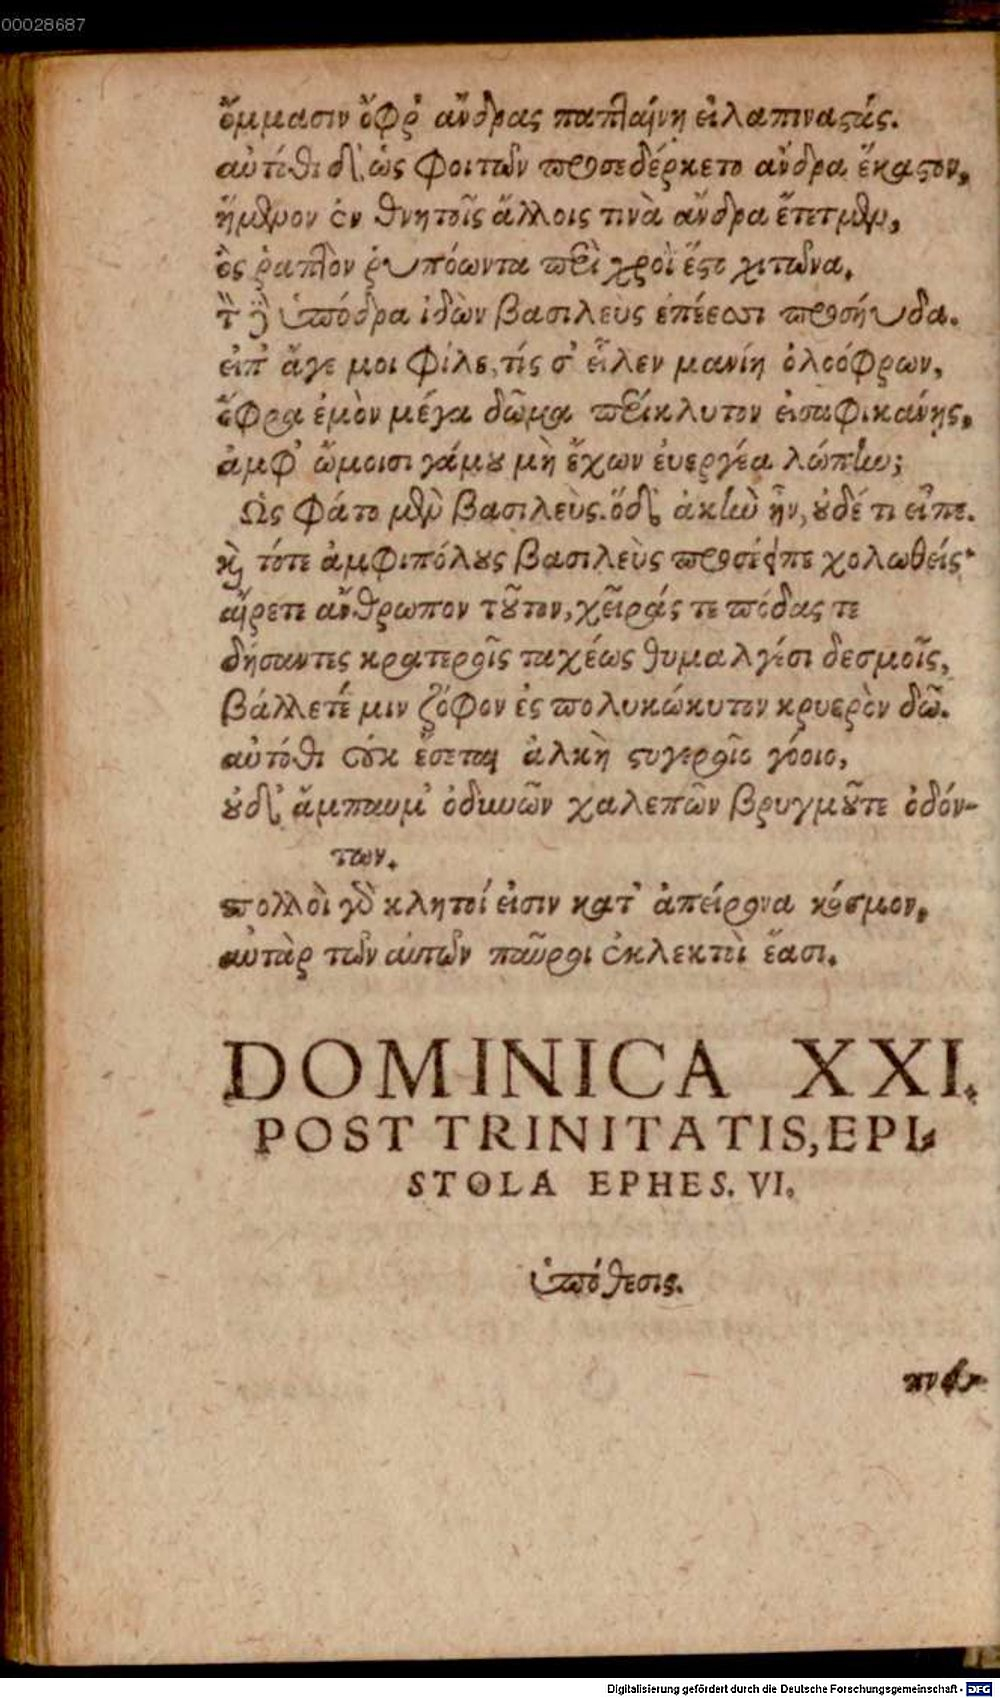 00028687
ὄμμασιν ὄφρ' ἄνδρας παπταίνῃ εἰλαπιναστάς.
αὐτίθι δ', ὡς φοιτῶν προσεδέρκετο ἄνδρα ἕκαστον,
ἥμενον ἐν θνητοῖς ἄλλοις τινὰ ἄνδρα ἔτετμεν,
ὃς ῥαπτὸν ῥυπόωντα περὶ χροῒ ἕστο χιτῶνα.
τὸν δ' ὑπόδρα ἰδὼν βασιλεὺς ἐπέεσσι προσηύδα.
εἴπ' ἄγε μοι φίλε, τίς σ' εἷλεν μανίη ὀλοόφρων,
ὄφρα ἐμὸν μέγα δῶμα περίκλυτον εἰσαφικάνῃς,
ἀμφ' ὤμοισι γάμου μὴ ἔχων ἐυεργέα λώπην;
Ὣς φάτο μὲν βασιλεὺς. ὅδ', ἀκὴν ἦν, οὐδέ τι εἶπε.
καὶ τότε ἀμφιπόλους βασιλεὺς προσέειπε χολωθείς·
αἴρετε ἄνθρωπον τοῦτον, χεῖράς τε πόδας τε
δήσαντες κρατεροῖς ταχέως θυμαλγέσι δεσμοῖς,
βάλλετέ μιν ζόφον ἐς πολυκώκυτον κρυερὸν δῶ.
αὐτόθι οὐκ ἔσεται ἀλκὴ στυγεροῖο γόοιο,
οὐδ' ἄμπαυμ' ὀδυνῶν χαλεπῶν βρυγμοῦτε ὀδόν-
των.
πολλοὶ γὰρ κλητοί εἰσιν κατ' ἀπείρονα κόσμον,
αὐτὰρ τῶν αὐτῶν παῦροι ἐκλεκτοὶ ἔασι.
DOMINICA XXI.
POST TRINITATIS, EPI-
STOLA EPHES. VI.
ὑπόθεσις.
Digitalisierung gefördert durch die Deutsche Forschungsgemeinschaft - DFG